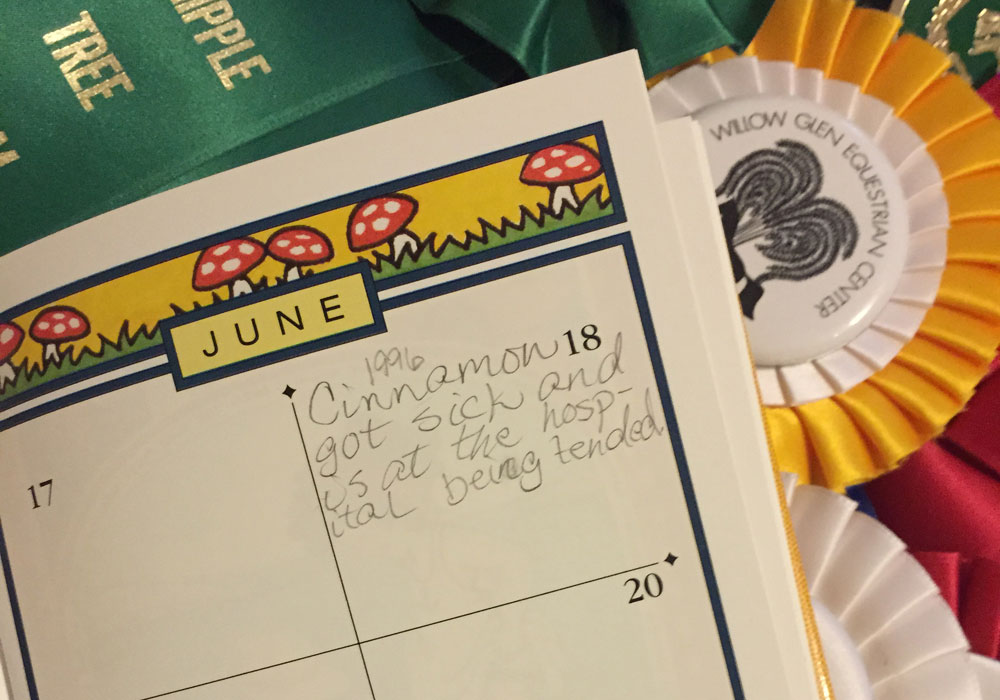 TREE
IPPLE
WILLOW GLEN EQUESTRIAN CENTER
JUNE
17
18
1996
Cinnamon
got sick and
is at the hosp-
ital being tended
20